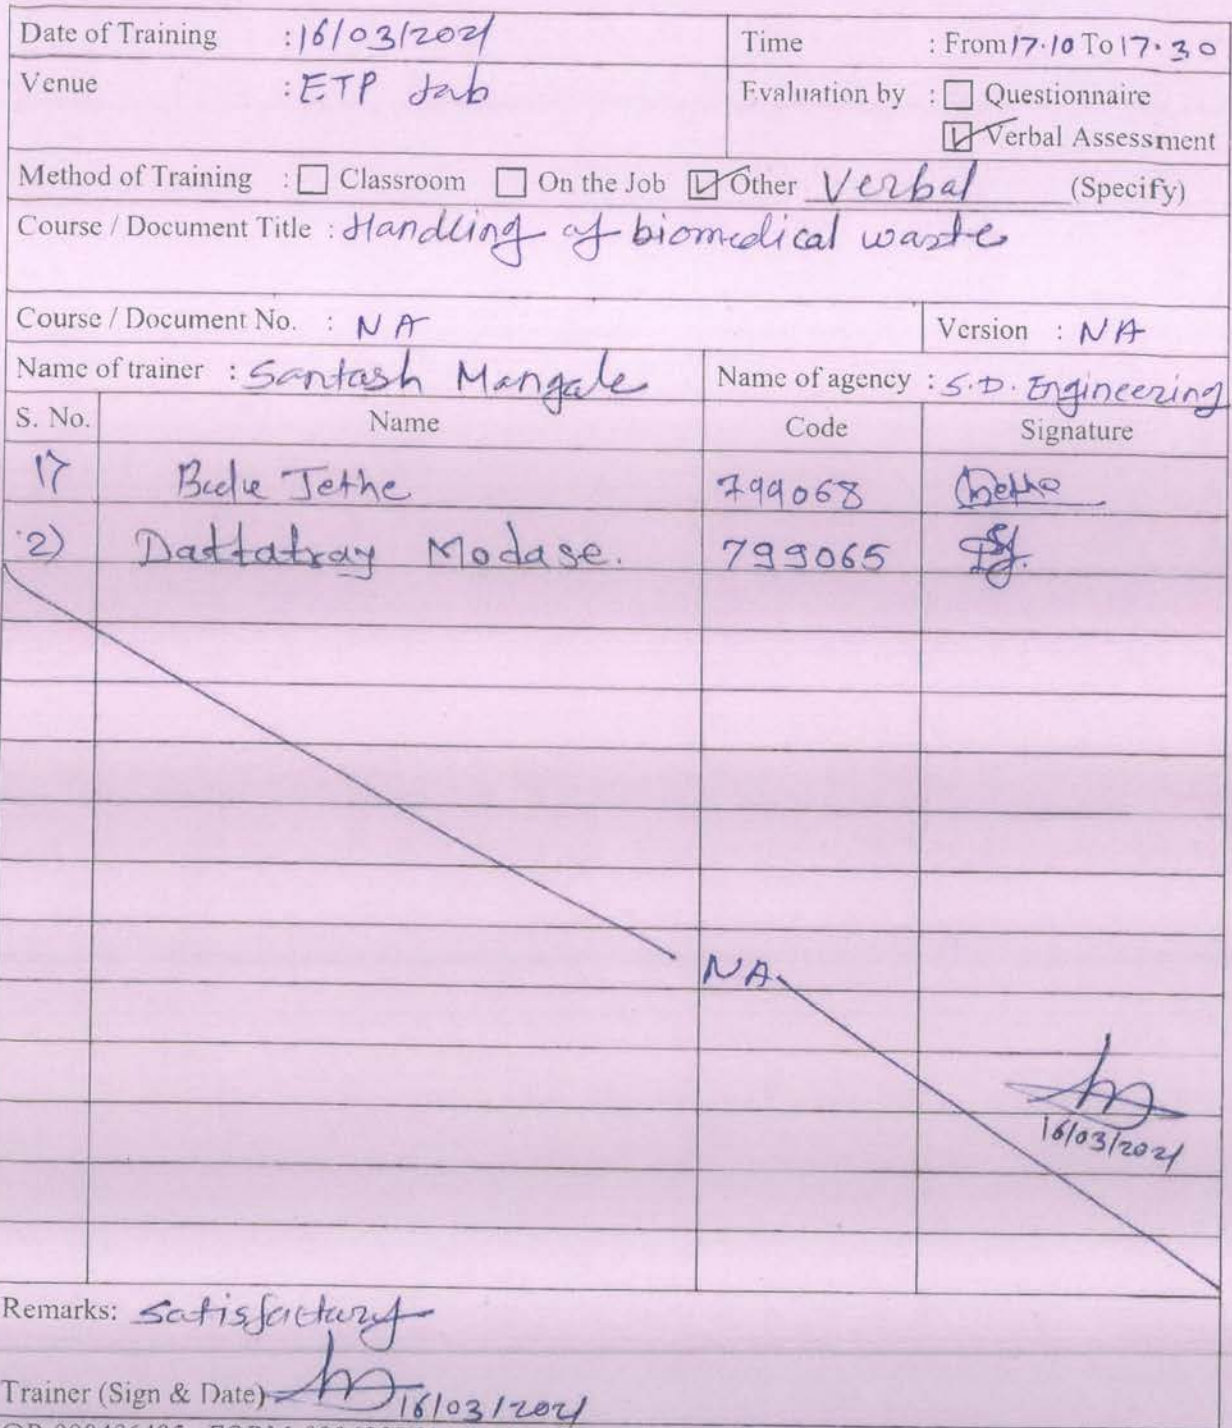 Date of Training : 16/03/2021 Time : From 17.10 To 17.30
Venue : ETP Lab Evaluation by : Questionnaire
Verbal Assessment
Method of Training : Classroom On the Job Other Verbal (Specify)
Course / Document Title : Handling of biomedical waste
Course / Document No. : NA Version : NA
Name of trainer : Santosh Mangale Name of agency : S.D. Engineering
S. No. Name Code Signature
1) Jethe 799068 Jethe
2) Dattatray Modase. 799065
NA
16/03/2021
Remarks: Satisfactory
Trainer (Sign & Date) 16/03/2021